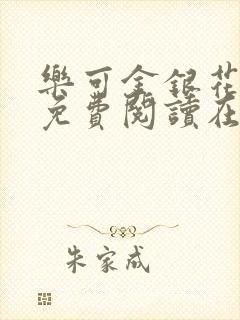 樂可金銀花
免費閱讀在
朱家成